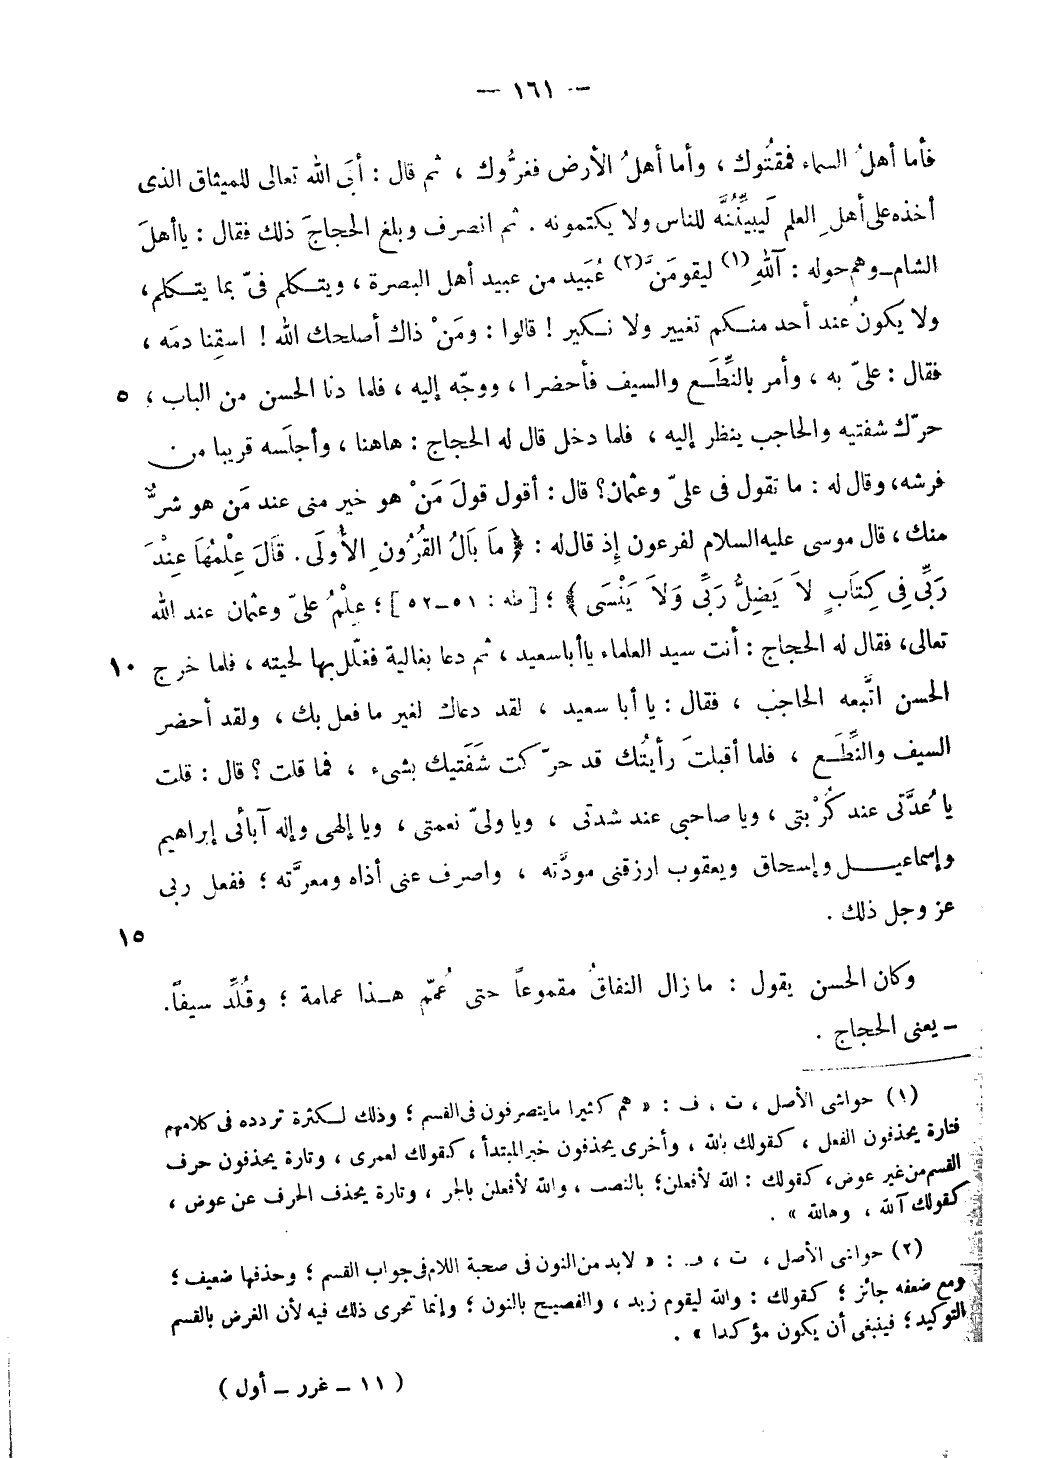 — ١٦١ —
فأما أهلُ السماء فمقتُوك ، وأما أهلُ الأرض فغرُّوك ، ثم قال : أبَى الله تعالى للميثاق الذى
أخذه على أهلِ العلم لَيبيِّنُنَّه للناس ولا يكتمونه . ثم انصرف وبلغ الحجاجَ ذلك فقال : ياأهلَ
الشام—وهم حوله : آللهِ (١) ليقومَنَّ (٢) عُبَيد من عبيد أهل البصرة ، ويتكلم فىّ بما يتكلم ،
ولا يكونُ عند أحد منكم تغيير ولا نكير ! قالوا : ومَنْ ذاك أصلحك الله ! اسقِنا دمَه ،
فقال : علىّ به ، وأمر بالنِّطَع والسيف فأحضرا ، ووجّه إليه ، فلما دنا الحسن من الباب ؛ ٥
حرّك شفتيه والحاجب ينظر إليه ، فلما دخل قال له الحجاج : هاهنا ، وأجلَسه قريبا من
فرشه، وقال له : ما تقول فى علىّ وعثمان؟ قال : أقول قولَ مَنْ هو خير منى عند مَن هو شرٌّ
منك ، قال موسى عليه السلام لفرعون إِذ قال له : ﴿ مَا بَالُ القُرُونِ الأُولَى . قَالَ عِلْمُهَا عِنْدَ
رَبِّى فِى كِتَابٍ لاَ يَضِلُّ رَبِّى وَلاَ يَنْسَى ﴾ ؛ [طه : ٥١—٥٢] ؛ عِلْمُ علىّ وعثمان عند الله
تعالى، فقال له الحجاج : أنت سيد العلماء ياأباسعيد ، ثم دعا بغالية فغلّل بها لحيته ، فلما خرج ١٠
الحسن اتَّبعه الحاجب ، فقال : يا أبا سعيد ، لقد دعاك لغير ما فعل بك ، ولقد أحضر
السيف والنِّطَع ، فلما أقبلتَ رأيتُك قد حرّكت شَفَتيك بشىء ، فما قلت ؟ قال : قلت
يا عُدَّتى عند كُرْبتى ، ويا صاحبى عند شدتى ، ويا ولىّ نعمتى ، ويا إلهى وإله آبائى إبراهيم
وإسماعيل وإسحاق ويعقوب ارزقنى مودَّته ، واصرف عنى أذاه ومعرَّته ؛ ففعل ربى
عز وجل ذلك . ١٥
وكان الحسن يقول : ما زال النفاقُ مقموعاً حتى عُمّم هذا عمامة ؛ وقُلِّد سيفاً.
— يعنى الحجاج .
(١) حواشى الأصل ، ت ، ف : « هم كثيرا مايتصرفون فى القسم ؛ وذلك لكثرة تردده فى كلامهم
فتارة يحذفون الفعل ، كقولك بالله ، وأخرى يحذفون خبرالمبتدأ ، كقولك لعمرى ، وتارة يحذفون حرف
القسم من غير عوض، كقولك : الله لأفعلن؛ بالنصب ، والله لأفعلن بالجر ، وتارة يحذف الحرف عن عوض ،
كقولك آلله ، وهالله » .
(٢) حواشى الأصل ، ت ، ف : « لابد من النون فى صحبة اللام فى جواب القسم ؛ وحذفها ضعيف ؛
ومع ضعفه جائز ؛ كقولك : والله ليقوم زيد ، والفصيح بالنون ؛ وإنما تحرى ذلك فيه لأن الغرض بالقسم
التوكيد؛ فينبغى أن يكون مؤكدا » .
( ١١ — غرر — أول )